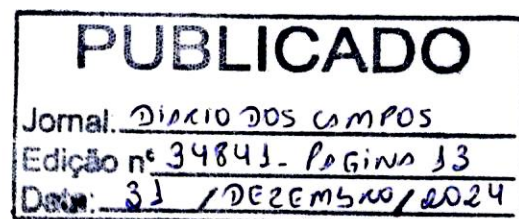 PUBLICADO
Jornal: DiARIO DOS CAMPOS
Edição nº 34841- PAGiNA 13
Data: 31 / DEZEMBRO / 2024